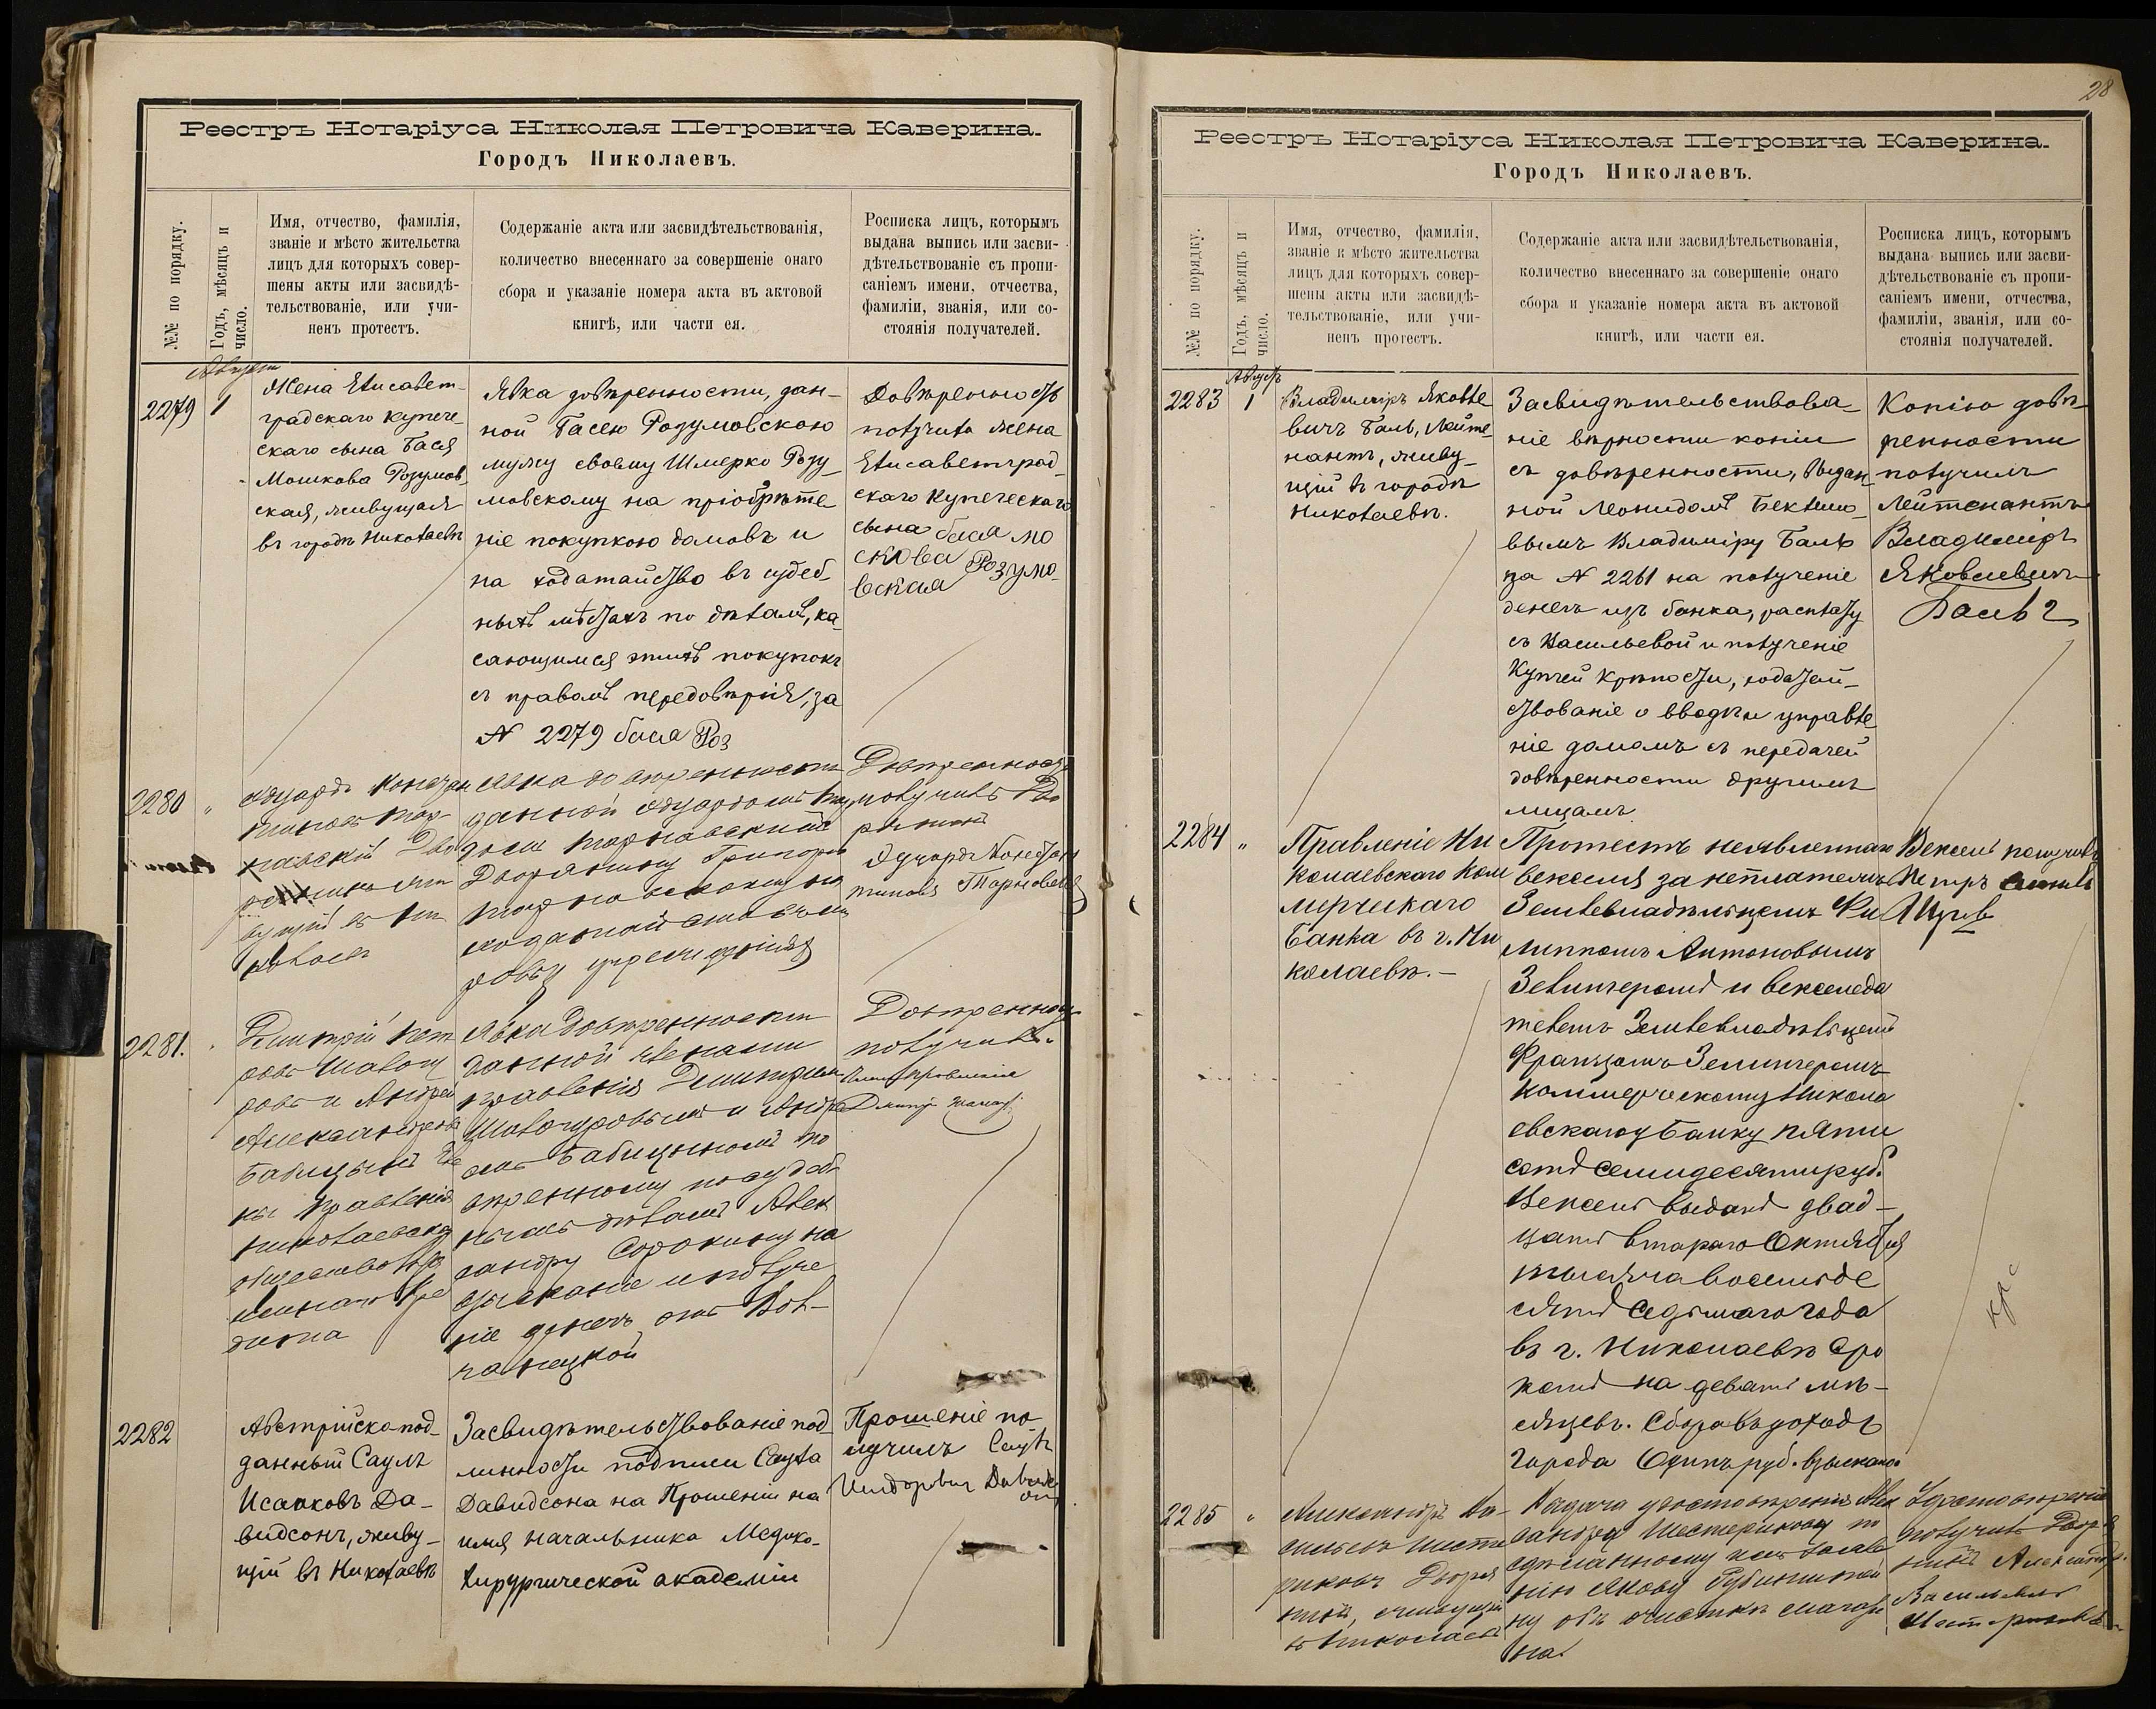 Реестръ Нотаріуса Николая Петровича Каверина.
Городъ Николаевъ.
№№ по порядку.
Годъ, мѣсяцъ и
число.
Имя, отчество, фамилія,
званіе и мѣсто жительства
лицъ для которыхъ совер-
шены акты или засвидѣ-
тельствованіе, или учи-
ненъ протестъ.
Содержаніе акта или засвидѣтельствованія,
количество внесеннаго за совершеніе онаго
сбора и указаніе номера акта въ актовой
книгѣ, или части ея.
Росписка лицъ, которымъ
выдана выпись или засви-
дѣтельствованіе съ пропи-
саніемъ имени, отчества,
фамиліи, званія, или со-
стоянія получателей.
Августъ
2279
1
Жена Елисавет-
градскаго купече
скаго сына Бася
Мошкова Розумов
ская, живущая
въ городѣ Николаевѣ
Явка довѣренности, дан-
ной Басею Розумовскою
мужу своему Шмерко Розу
мовскому на пріобрѣте
ніе покупкою домовъ и
на ходатайство въ судеб
ныхъ мѣстахъ по дѣламъ, ка
сающимся этихъ покупокъ
съ правомъ передовѣрія, за
N 2279 бася Роз
Довѣренность
получила жена
Елисаветград
скаго купеческаго
сына бася мо
скова Розумо
вская
2280
"
Эдуардъ Констан
тиновъ Тар
навскій Дво
въ Ни
колаевѣ
Явка довѣренности
данной Эдуардомъ
Тарнавскимъ
Дворянину Григорію
Тарнавскому на
Довѣренность
получилъ Дво
рянинъ
Эдуардъ Констан
тиновъ Тарновскій
2281.
Дмитрій Пет
ровъ Шавоц
ровъ и Андрей
Александровъ
Бабицынъ Чле
ны Правленія
Николаевскаго
Общества Вза
имнаго Кре
дита
Явка Довѣренности
данной членами
правленія Дмитріемъ
и Андре
емъ Бабицынымъ по
вѣренному по судеб
нымъ дѣламъ Алек
сандру Сорокину на
взысканіе и получе
ніе денегъ отъ Вол-
Довѣренность
получилъ
Членъ Правленія
2282
Австрійско под
данный Саулъ
Исааковъ Да-
видсонъ, живу-
щій въ Николаевѣ
Засвидѣтельствованіе под
линности подписи Саула
Давидсона на Прошеніи на
имя начальника Медико-
хирургической академіи
Прошеніе по
лучилъ Саулъ
28
Реестръ Нотаріуса Николая Петровича Каверина.
Городъ Николаевъ.
№№ по порядку.
Годъ, мѣсяцъ и
число.
Имя, отчество, фамилія,
званіе и мѣсто жительства
лицъ для которыхъ совер-
шены акты или засвидѣ-
тельствованіе, или учи-
ненъ протестъ.
Содержаніе акта или засвидѣтельствованія,
количество внесеннаго за совершеніе онаго
сбора и указаніе номера акта въ актовой
книгѣ, или части ея.
Росписка лицъ, которымъ
выдана выпись или засви-
дѣтельствованіе съ пропи-
саніемъ имени, отчества,
фамиліи, званія, или со-
стоянія получателей.
Августъ
2283
1
Владиміръ Яковле
вичъ Баль, Лейте
нантъ, живу-
щій въ городѣ
Николаевѣ.
Засвидѣтельствова-
ніе вѣрности копіи
съ довѣренности, выдан
ной Леонидомъ Бекташо-
вымъ Владиміру Баль
за N 2261 на полученіе
денегъ изъ банка, расплату
съ Васильевой и полученіе
Купчей крѣпости, ходатай-
ствованіе о вводѣ и управле
ніе домомъ съ передачей
довѣренности другимъ
лицамъ.
Копію довѣ
ренности
получилъ
Лейтенантъ
Владиміръ
Яковлевичъ
Баль 2
2284
"
Правленіе Ни
колаевскаго Ком
мерческаго
Банка въ г. Ни
колаевѣ. —
Протестъ неявленнаго
векселя за неплатежъ
Землевладѣльцемъ Фи
липпомъ Антоновымъ
Зелингеромъ и векселеда
телемъ Землевладѣльцемъ
Францомъ Зелингеромъ
Коммерческому Никола
евскому Банку пяти
сотъ семидесяти руб.
Вексель выданъ двад-
цать втораго Октября
тысяча восемьде
сятъ седьмаго года
въ г. Николаевѣ сро
комъ на девять мѣ-
сяцевъ. Сбора въ доходъ
города Одинъ руб. взыскано
Вексель получилъ
Петръ
2285
"
Александръ Ва-
сильевъ Шесте
риковъ Дворя
нинъ, живущій
въ Николаевѣ
Выдача удостовѣренія Алек
сандру Шестерикову по
сдѣланному имъ заявле
нію Якову Рубинштей
ну объ очисткѣ магази
на.
Удостовѣреніе
получилъ Дворя
нинъ Александръ
Васильевъ
Шестериковъ